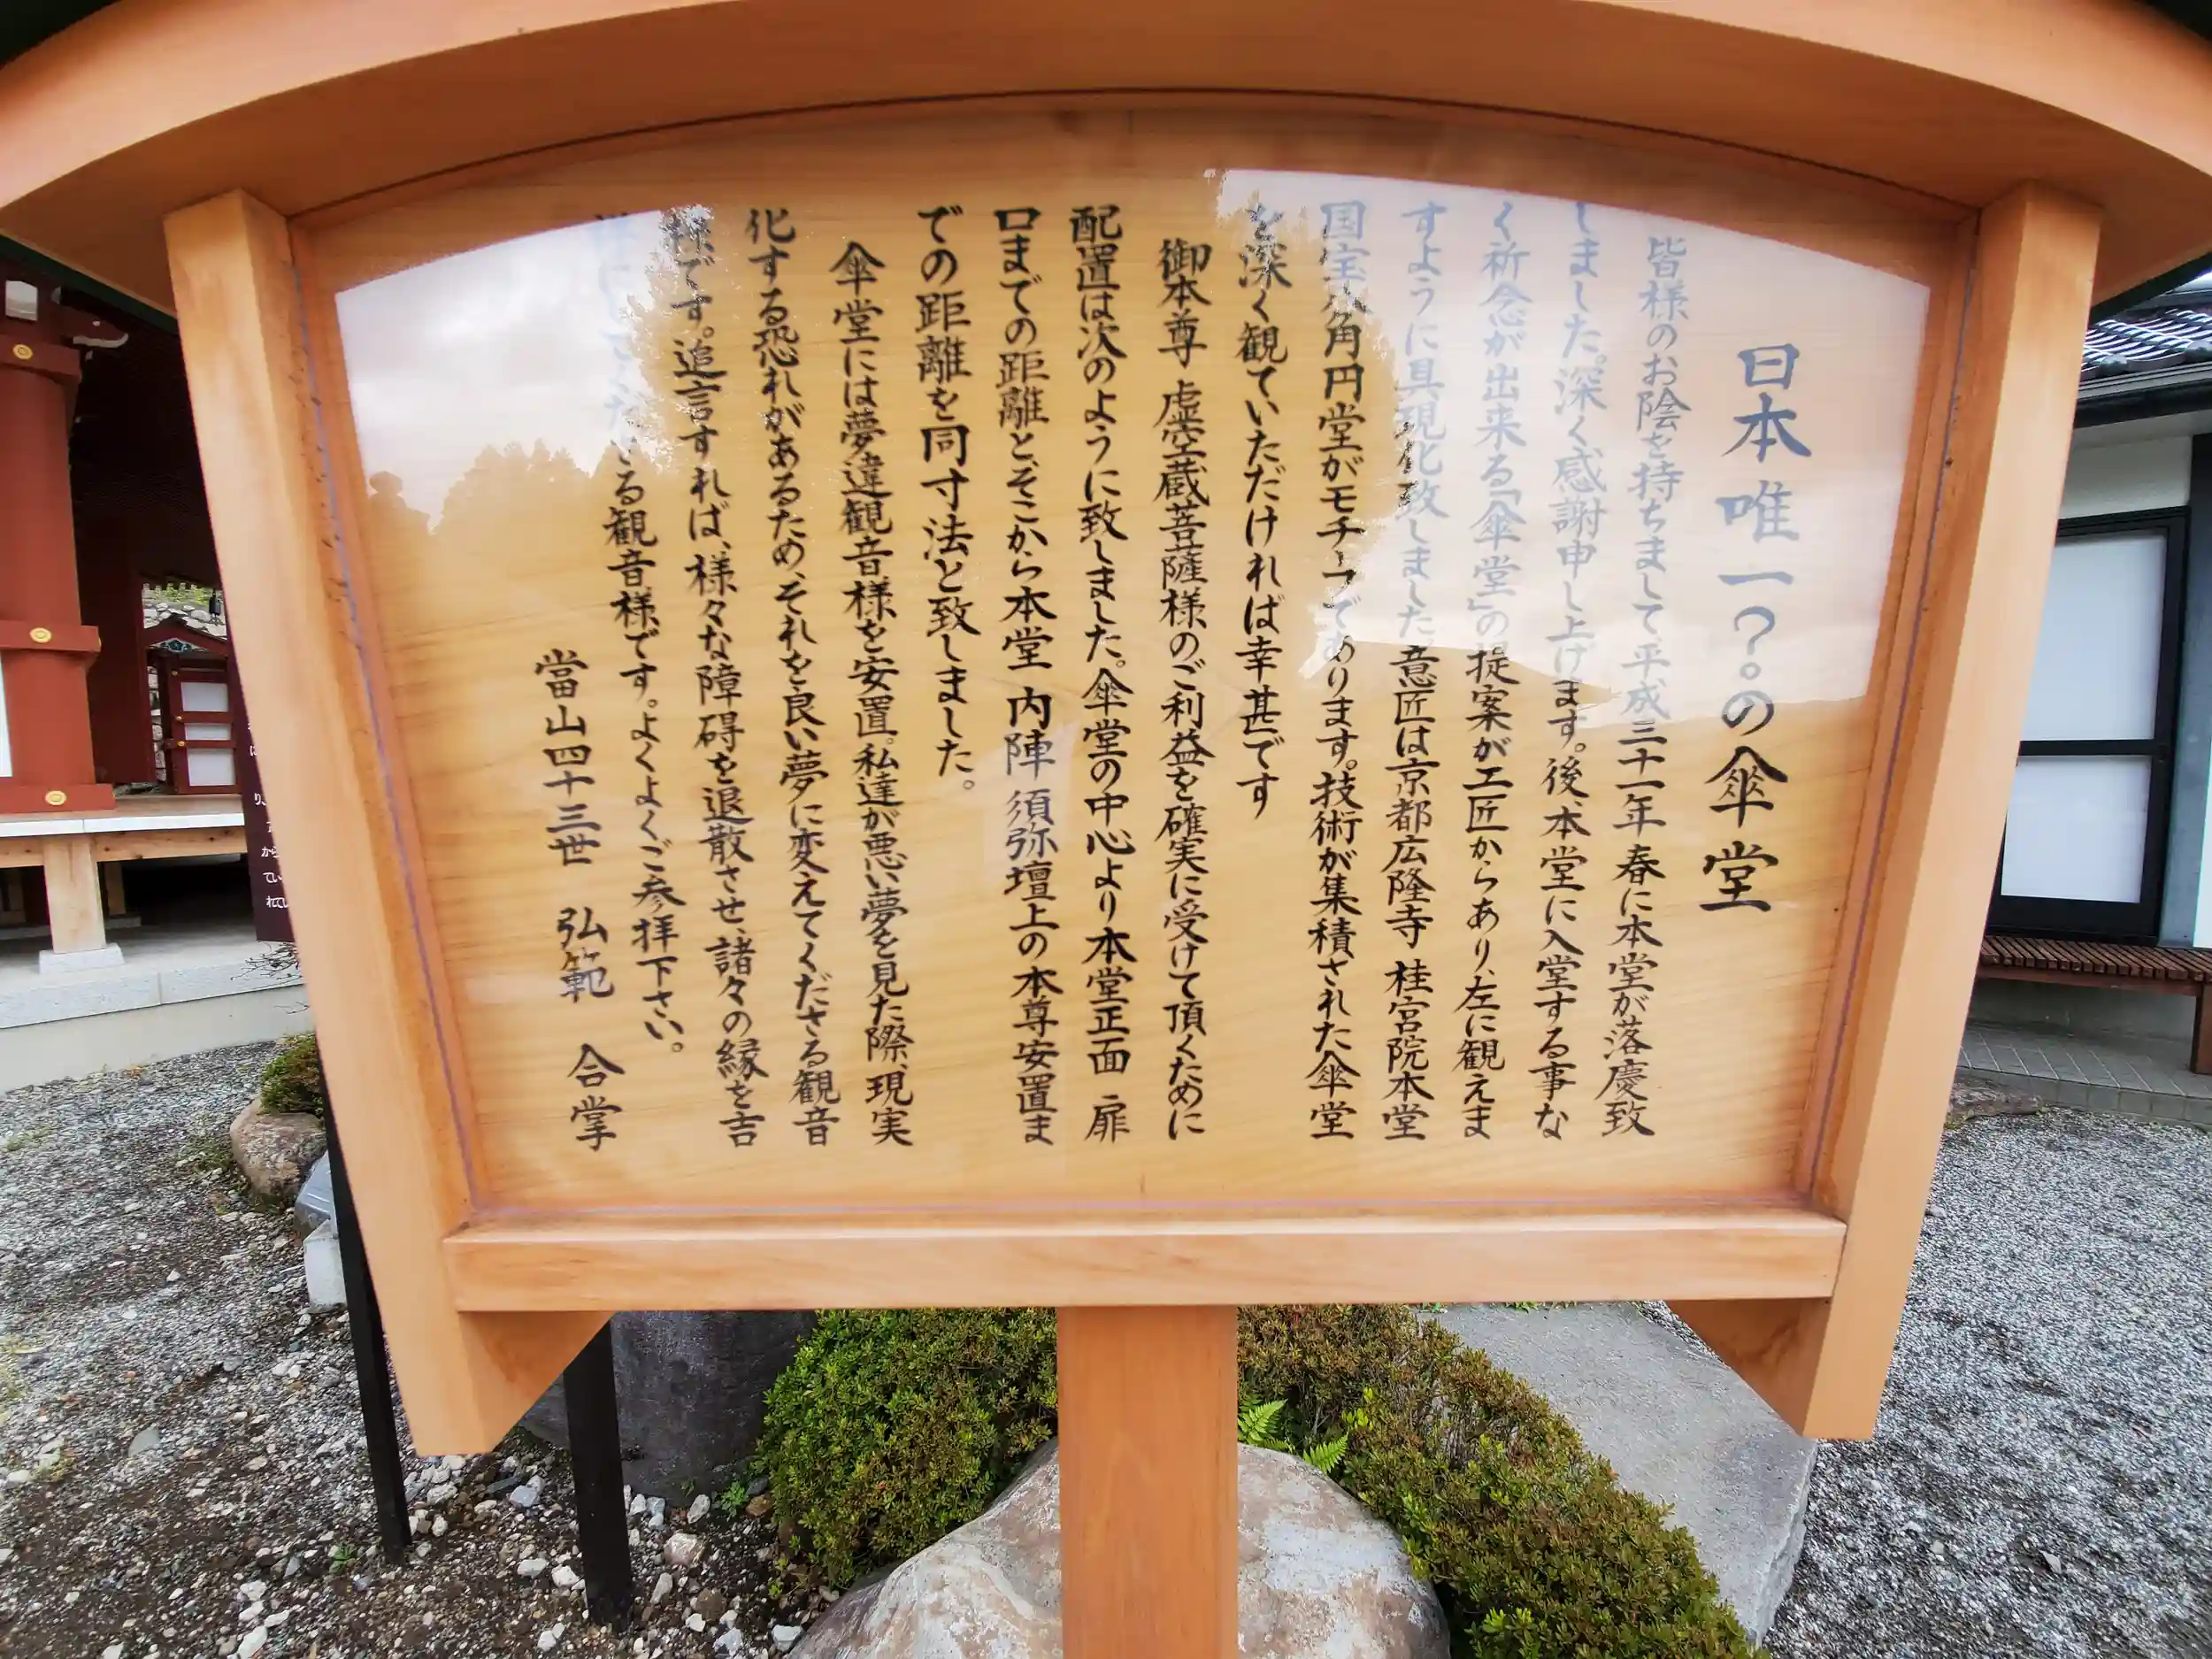 日本唯一?。の傘堂
皆様のお陰を持ちまして平成三十一年春に本堂が落慶致
しました。深く感謝申し上げます。後、本堂に入堂する事な
く祈念が出来る「傘堂」の提案が工匠からあり、左に観えま
すように具現化致しました。意匠は京都広隆寺 桂宮院本堂
国宝八角円堂がモチーフであります。技術が集積された傘堂
を深く観ていただければ幸甚です
御本尊 虚空蔵菩薩様のご利益を確実に受けて頂くために
配置は次のように致しました。傘堂の中心より本堂正面 扉
口までの距離と、そこから本堂 内陣 須弥壇上の本尊安置ま
での距離を同寸法と致しました。
傘堂には夢違観音様を安置。私達が悪い夢を見た際、現実
化する恐れがあるため、それを良い夢に変えてくださる観音
様です。追言すれば、様々な障碍を退散させ、諸々の縁を吉
祥にしてくださる観音様です。よくよくご参拝下さい。
當山四十三世 弘範 合掌